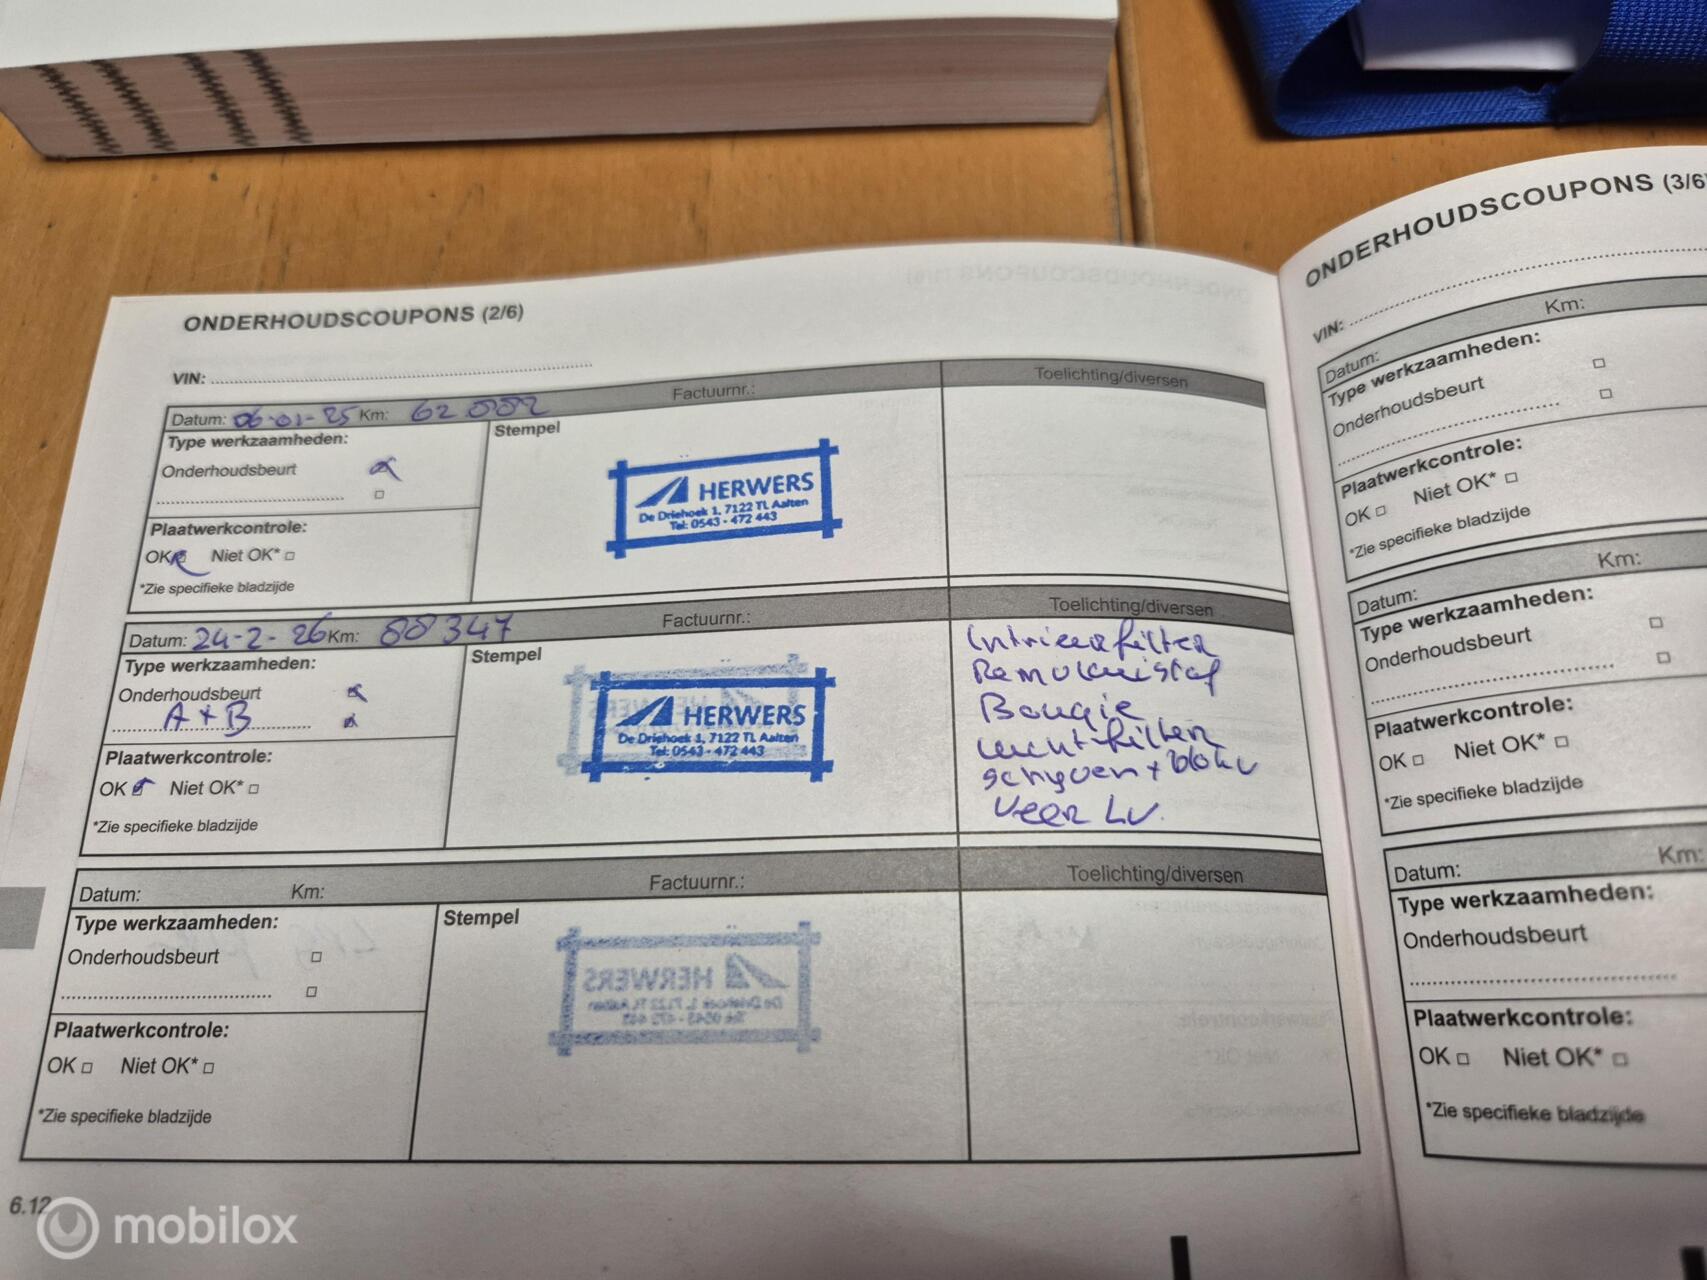 ONDERHOUDSCOUPONS (2/6)
VIN:
Datum: 06-01-25 Km: 62 002 Factuurnr.: Toelichting/diversen
Type werkzaamheden: Stempel
Onderhoudsbeurt
HERWERS
De Driehoek 1, 7122 TL Aalten
Tel: 0543 - 472 443
Plaatwerkcontrole:
OK Niet OK*
*Zie specifieke bladzijde
Datum: 24-2-26 Km: 88347 Factuurnr.: Toelichting/diversen
Type werkzaamheden: Stempel
Onderhoudsbeurt
A+B
HERWERS
De Driehoek 1, 7122 TL Aalten
Tel: 0543 - 472 443
Plaatwerkcontrole:
OK Niet OK*
*Zie specifieke bladzijde
Bougie
Veer LV.
Datum: Km: Factuurnr.: Toelichting/diversen
Type werkzaamheden: Stempel
Onderhoudsbeurt
HERWERS
Plaatwerkcontrole:
OK Niet OK*
*Zie specifieke bladzijde
6.12
ONDERHOUDSCOUPONS (3/6)
VIN:
Datum: Km:
Type werkzaamheden:
Onderhoudsbeurt
Plaatwerkcontrole:
OK Niet OK*
*Zie specifieke bladzijde
Datum: Km:
Type werkzaamheden:
Onderhoudsbeurt
Plaatwerkcontrole:
OK Niet OK*
*Zie specifieke bladzijde
Datum: Km:
Type werkzaamheden:
Onderhoudsbeurt
Plaatwerkcontrole:
OK Niet OK*
*Zie specifieke bladzijde
mobilox